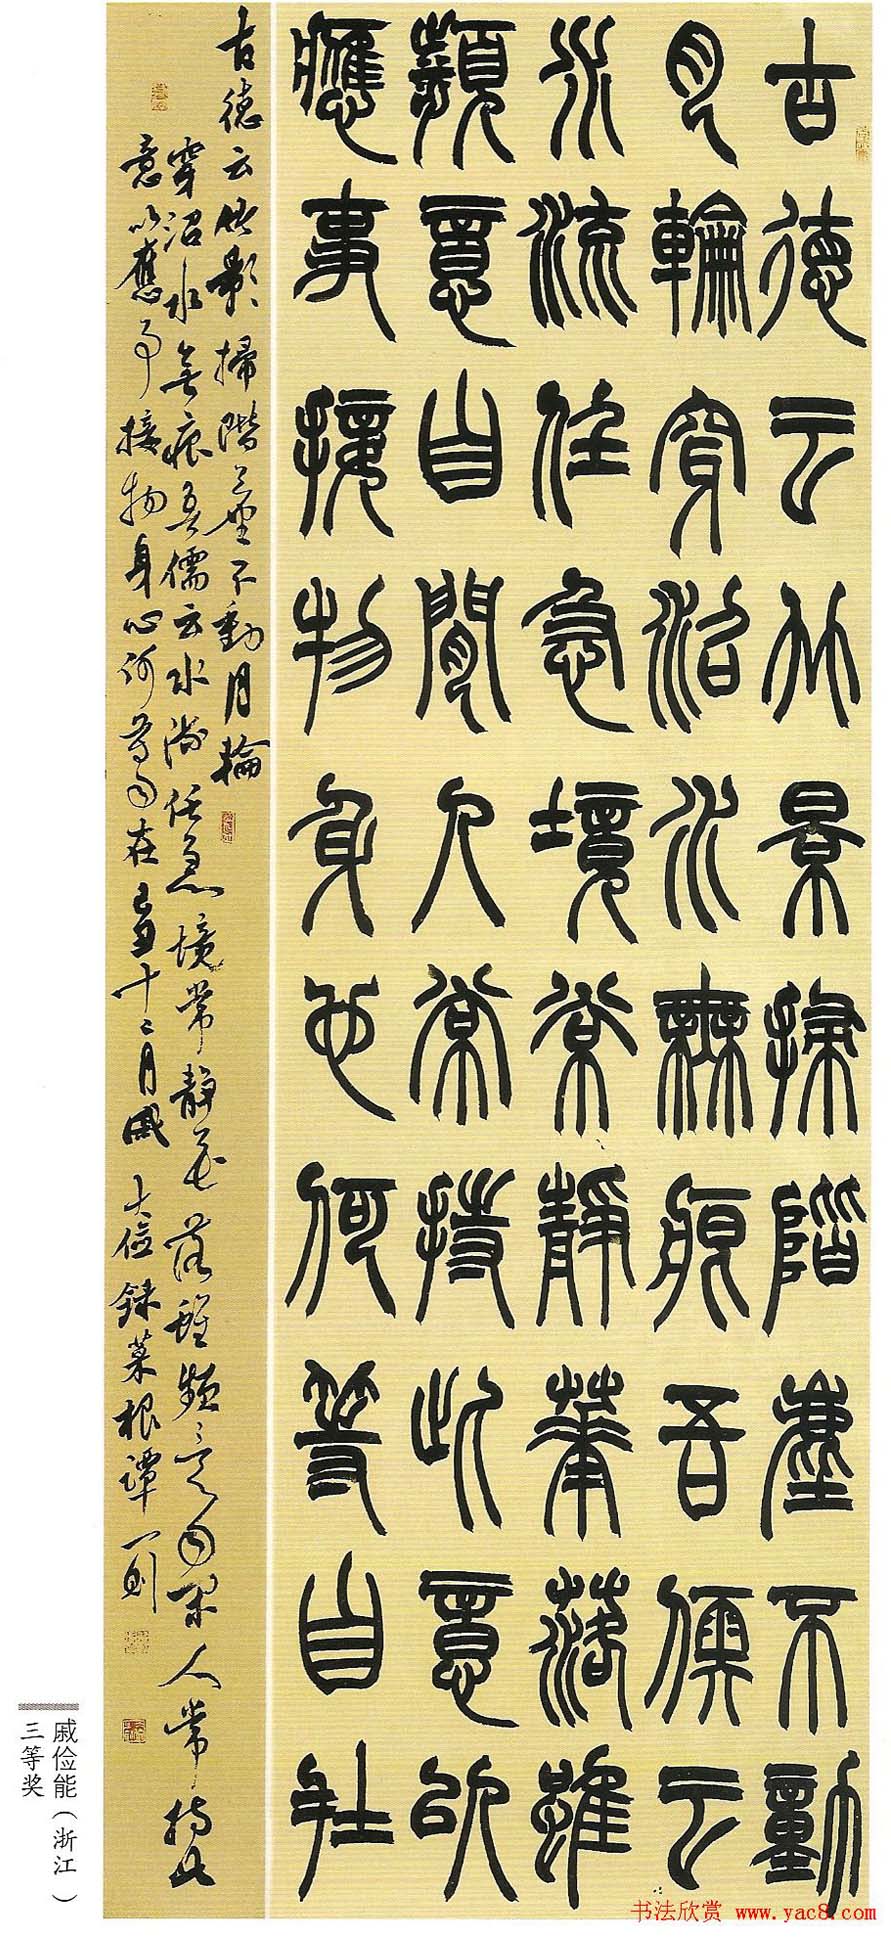 古德云竹景掃階塵不動
月輪穿沼水無痕吾儒云
水流任急境常靜華落雖
頻意自閒人常持此意以
應事接物身心何等自在
古德云竹影掃階塵不動月輪
穿沼水無痕吾儒云水流任急境常靜花落雖頻意自閑人常持此
意以應事接物身心何等自在己丑十二月戚大儉錄菜根譚一則
戚俭能（浙江）
三等奖
书法欣赏 www.yac8.com